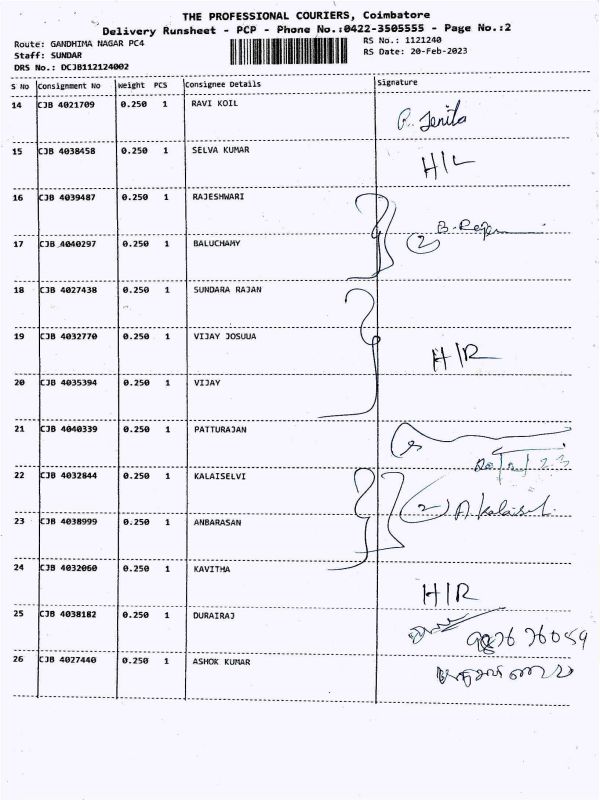 THE PROFESSIONAL COURIERS, Coimbatore
Delivery Runsheet - PCP - Phone No.:0422-3505555 - Page No.:2
Route: GANDHIMA NAGAR PC4
RS No.: 1121240
Staff: SUNDAR
RS Date: 20-Feb-2023
DRS No.: DCJB112124002
S No Consignment No Weight PCS Consignee Details Signature
14 CJB 4021709 0.250 1 RAVI KOIL
P. Jenita
15 CJB 4038458 0.250 1 SELVA KUMAR
H/L
16 CJB 4039487 0.250 1 RAJESHWARI
2
17 CJB 4040297 0.250 1 BALUCHAMY
18 CJB 4027438 0.250 1 SUNDARA RAJAN
19 CJB 4032770 0.250 1 VIJAY JOSUUA
H/R
20 CJB 4035394 0.250 1 VIJAY
21 CJB 4040339 0.250 1 PATTURAJAN
22 CJB 4032844 0.250 1 KALAISELVI
2
23 CJB 4038999 0.250 1 ANBARASAN
24 CJB 4032060 0.250 1 KAVITHA
H/R
25 CJB 4038182 0.250 1 DURAIRAJ
26 CJB 4027440 0.250 1 ASHOK KUMAR